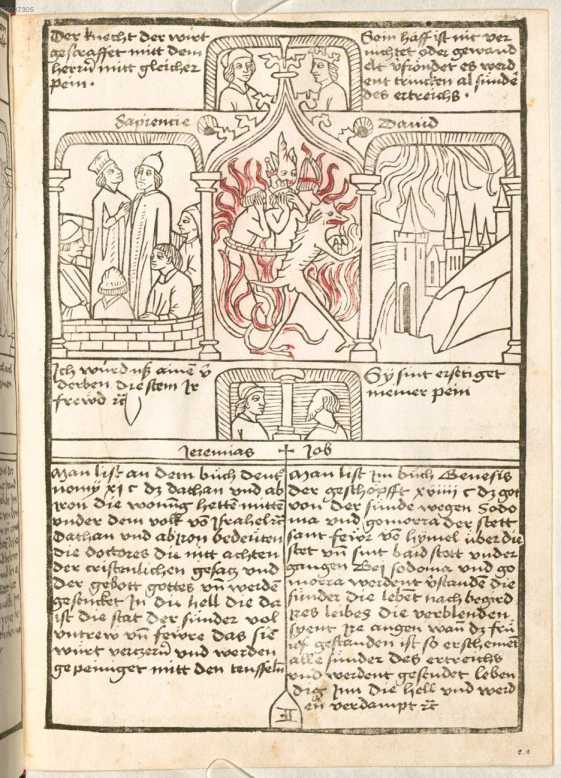 Der knecht der wirt
gestraffet mitt dem
herrn mitt gleicher
pein .
Sein haff ist nit ver
nichtet oder gewand
elt
trincken al sünde
des ertreichs .
Sapiencie
Dauid
Ich würd uß ainē v̄
derben die stem Ir
frewd ⁊c̄
Sy sint ersetiget
meiner pein
Jeremias
Job
Man list an dem bůch deut
nomÿ XI c dz dathan und ab
iron die wonūg hetten mitten
under dem volk vō Israhel ⁊c̄
Dathan und abiron bedeüten
die doctores die nitt achten
der cristenlichen gesatz und
der gebott gottes vn̄ werdē
gesencket In die hell die da
ist die stat der sünder vol
untrew vn̄ feüre das sie
würt verzern und werden
gepeiniget mitt den teuffeln
Man list Im bůch Genesis
der geschöpfft XVIIII c dz got
von der sünde wegen Sodo
ma und gomorra der stett
sant feür vō hymel über die
stet vn̄ sint baid stett under
gangen Bei sodoma und go
morra werdent v̄standē die
sünder die lebēt nach begird
Ires leibes die verblenden
Ire augen wan̄ dz
gestanden ist so erschemēt
alle sünder des ertreichs
und werdent gesendet leben
dig Inn die hell und werd
en verdampt ⁊c̄